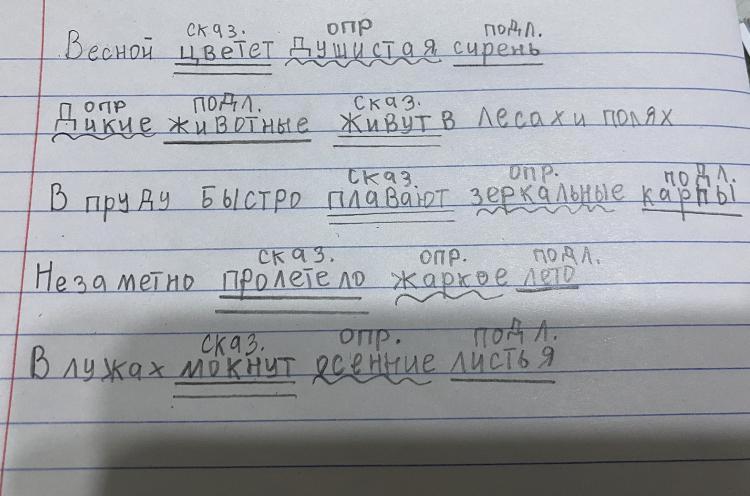 сказ. опр подл.
Весной цветет душистая сирень
опр подл. сказ.
Дикие животные живут в лесах и полях
сказ. опр. подл.
В пруду быстро плавают зеркальные карпы
сказ. опр. подл.
Незаметно пролетело жаркое лето
сказ. опр. подл.
В лужах мокнут осенние листья